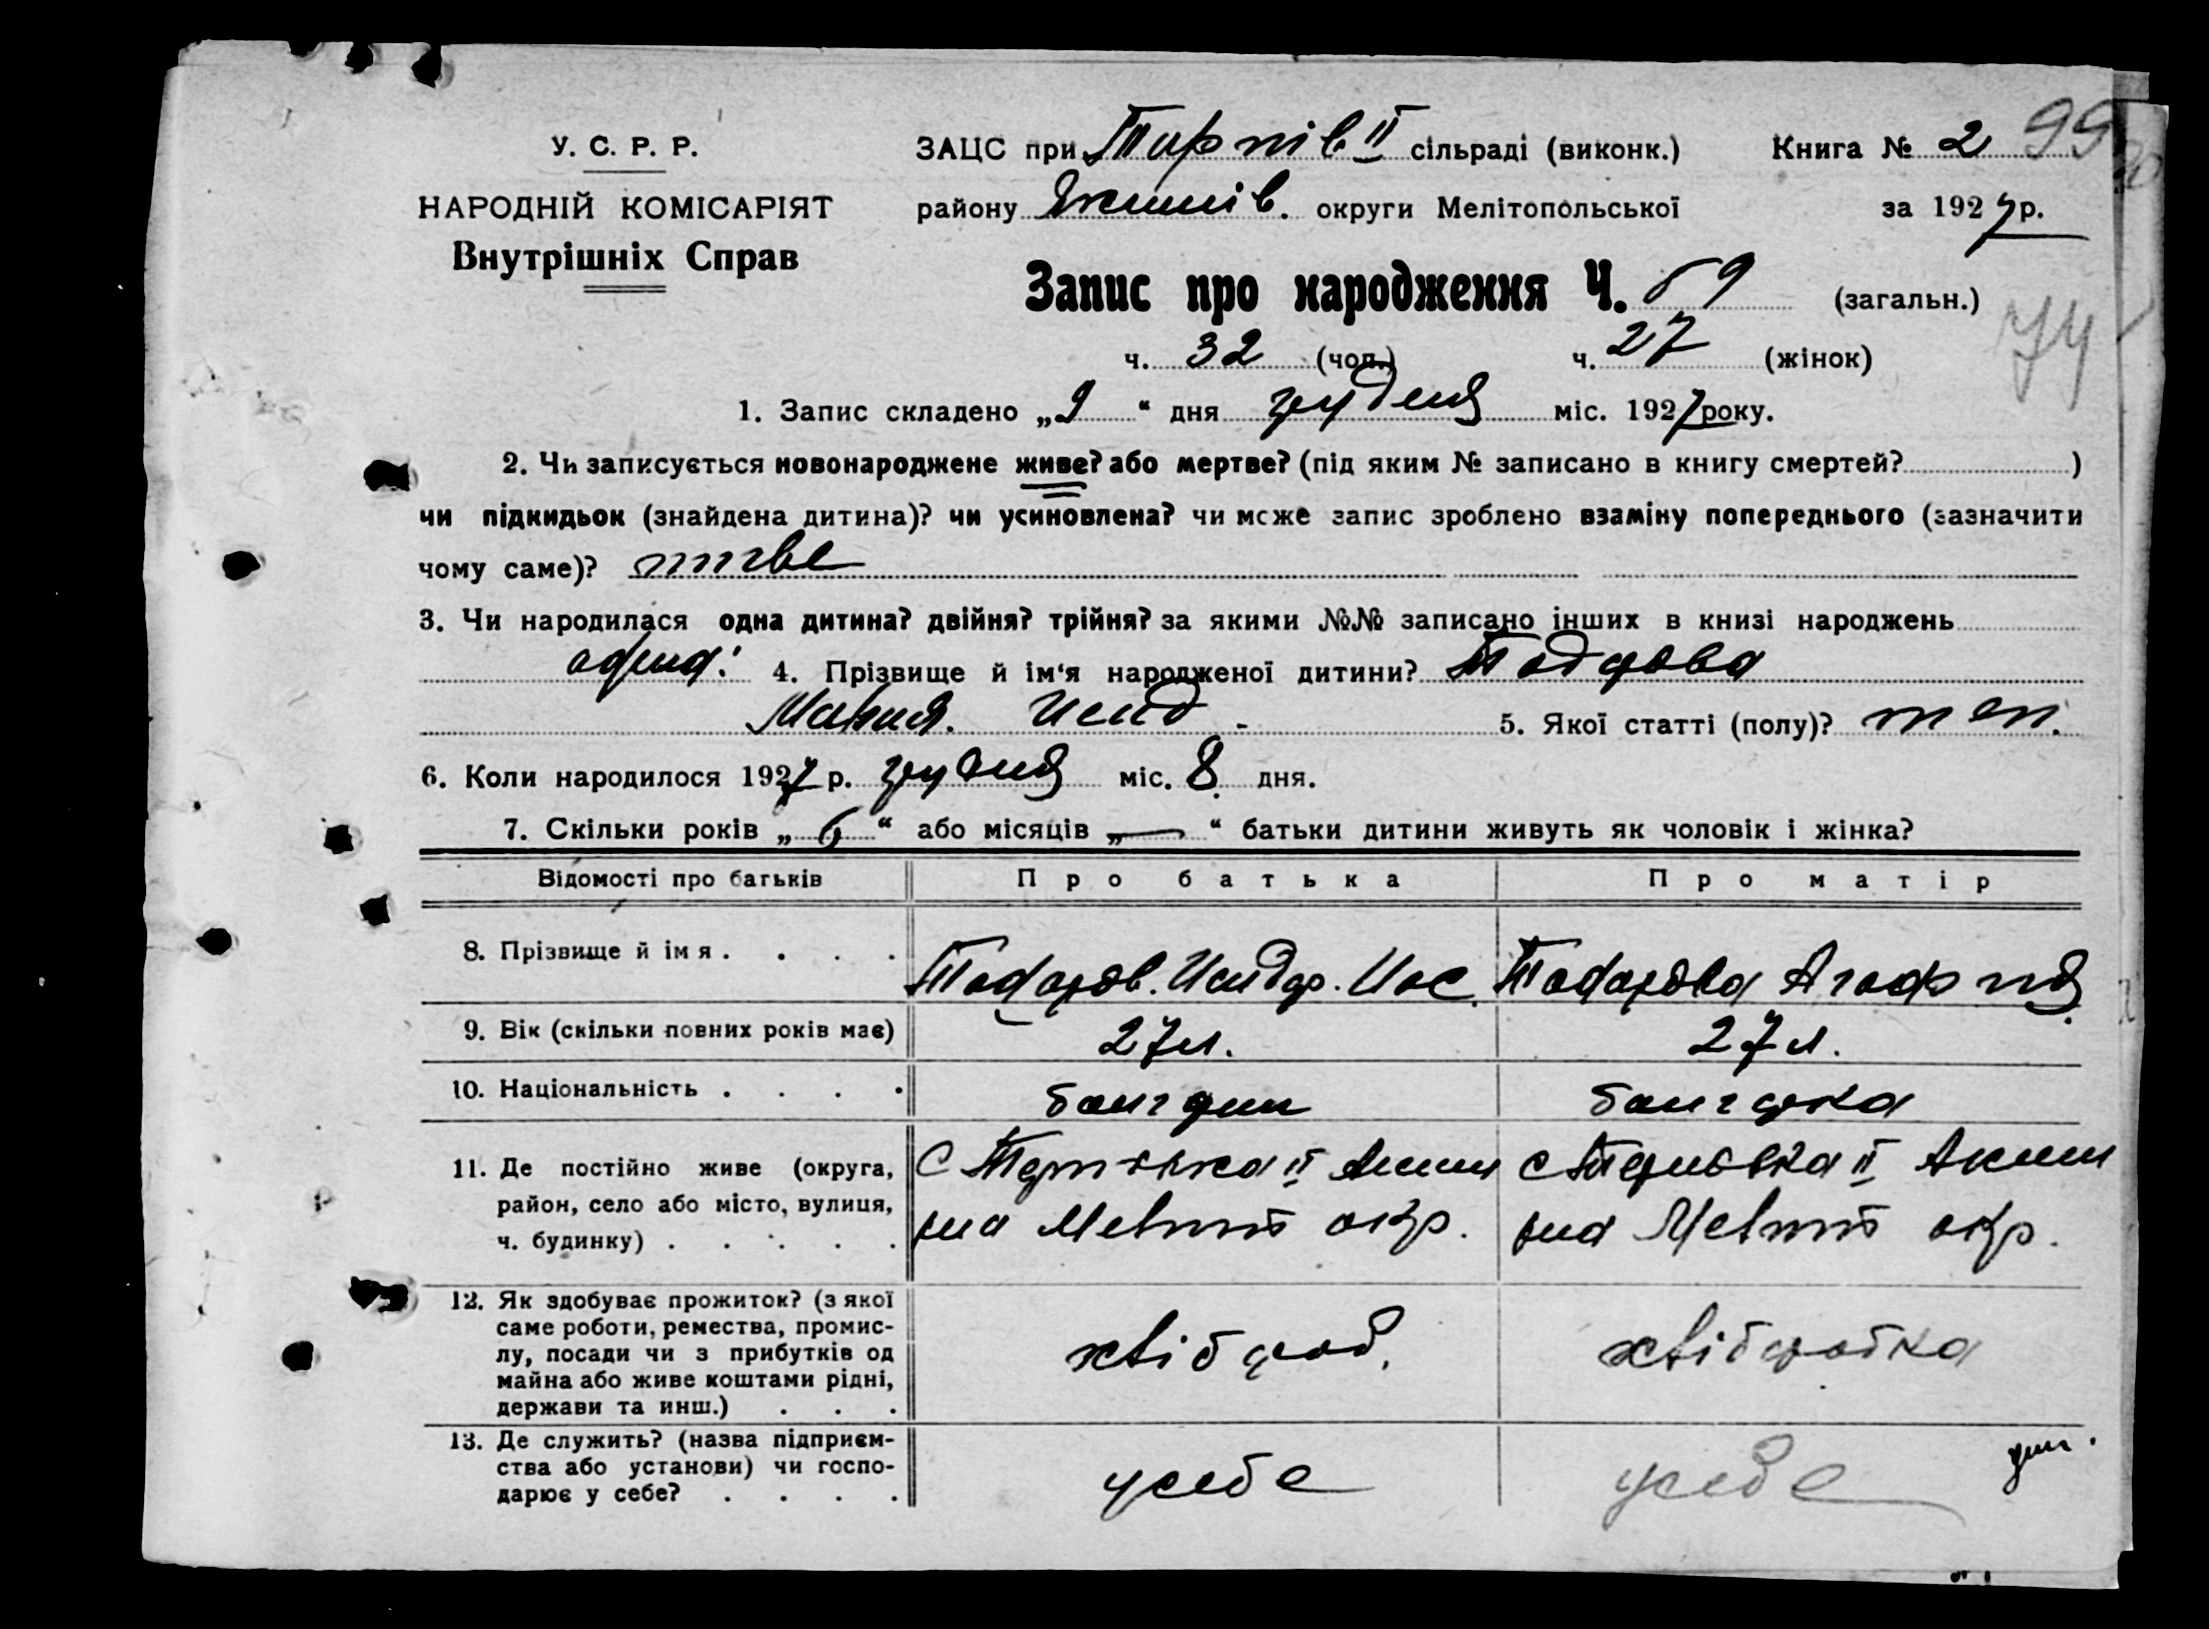 У. С. Р. Р.
НАРОДНІЙ КОМІСАРІЯТ
Внутрішніх Справ
ЗАЦС при Тирнів II сільраді (виконк.) Книга № 2 99
району Якимів. округи Мелітопольської за 1927 р.
Запис про народження Ч. 59 (загальн.)
74
ч. 32 (чол.) ч. 27 (жінок)
1. Запис складено „9“ дня грудня міс. 1927 року.
2. Чи записується новонароджене живе? або мертве? (під яким № записано в книгу смертей? )
чи підкидьок (знайдена дитина)? чи усиновлена? чи може запис зроблено взаміну попереднього (зазначити
чому саме)?
3. Чи народилася одна дитина? двійня? трійня? за якими №№ записано інших в книзі народжень
одна. 4. Прізвище й ім‘я народженої дитини? Тодорова
Мария. Исид - 5. Якої статті (полу)?
6. Коли народилося 1927 р. грудня міс. 8 дня.
7. Скільки років „6“ або місяців „—“ батьки дитини живуть як чоловік і жінка?
Відомості про батьків Про батька Про матір
8. Прізвище й імя . . . . Тодоров. Исидор. Иос. Тодорова Агафия
9. Вік (скільки повних років має) 27 л. 27 л.
10. Національність . . . . болгарин болгарка
11. Де постійно живе (округа, с Терновка II Аким с Терновка II Аким
район, село або місто, вулиця,
ч. будинку) . . . . . р-на Мелит окр. р-на Мелит окр.
12. Як здобуває прожиток? (з якої
саме роботи, ремества, промис-
лу, посади чи з прибутків од хлібороб. хліборобка
майна або живе коштами рідні,
держави та инш.) . . .
13. Де служить? (назва підприєм-
ства або установи) чи госпо- у себе у себе
дарює у себе? . . . .